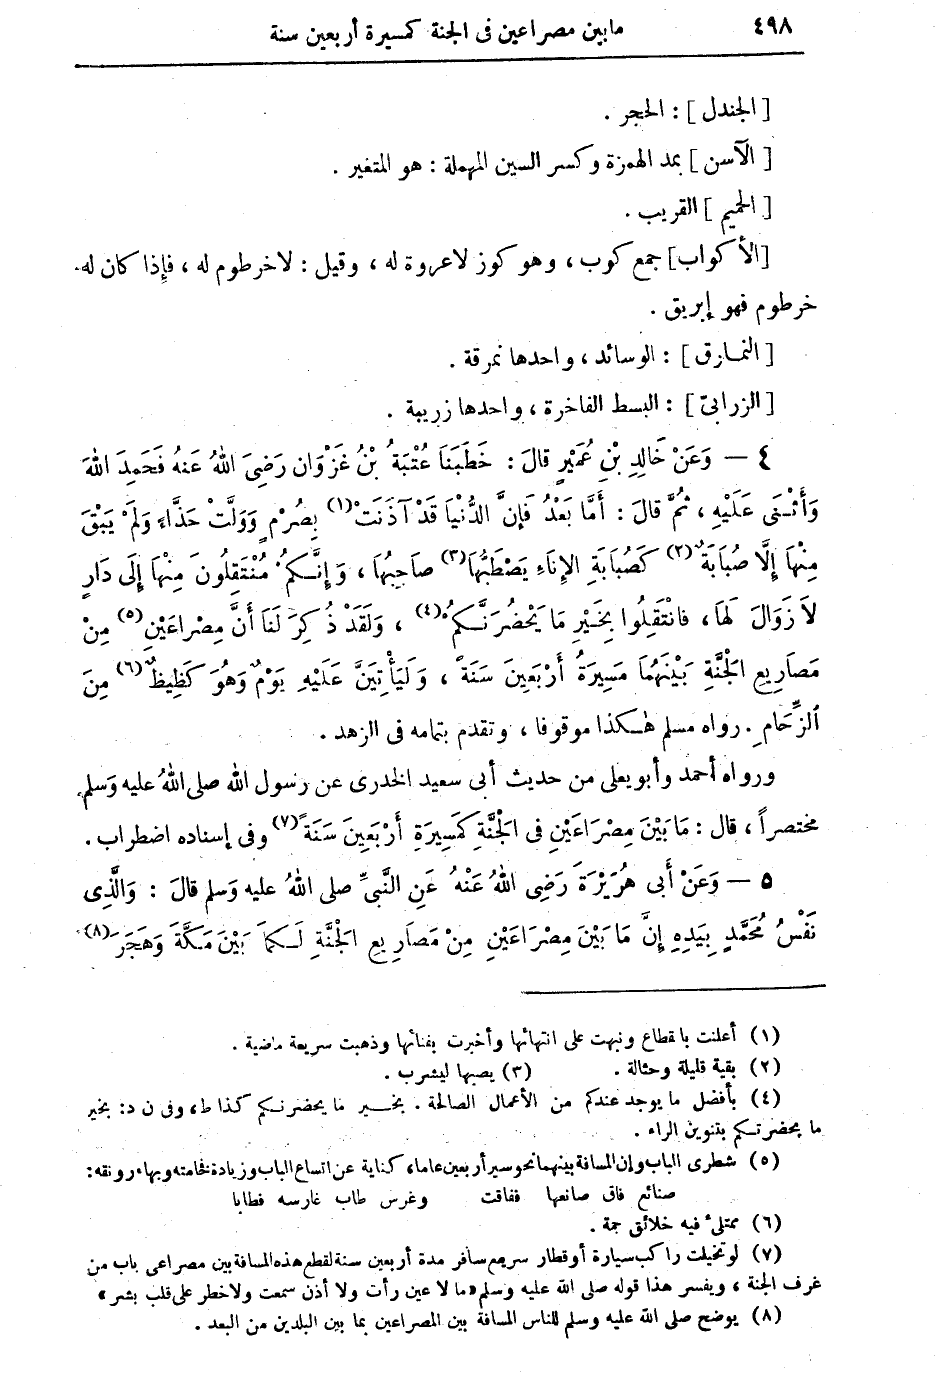 ٤٩٨
ما بين مصراعين فى الجنة كمسيرة أربعين سنة
[ الجندل ] : الحجر .
[ الآسن ] بمد الهمزة وكسر السين المهملة : هو المتغير .
[ الحميم ] القريب .
[الأكواب] جمع كوب ، وهو كوز لاعروة له ، وقيل : لاخرطوم له ، فإذا كان له
خرطوم فهو إبريق .
[ النمارق ] : الوسائد ، واحدها نمرقة .
[ الزرابىّ ] : البسط الفاخرة ، واحدها زريبة .
٤ — وَعَنْ خَالِدِ بْنِ عُمَيْرٍ قالَ : خَطَبَنَا عُتْبَةُ بْنُ غَزْوَان رَضِىَ اللهُ عَنهُ فَحَمِدَ اللهَ
وَأَثْنَى عَلَيْهِ ، ثُمَّ قالَ : أَمَّا بَعْدُ فَإِنَّ الدُّنْيَا قَدْ آذَنَتْ (١) بِصُرْمٍ وَوَلَّتْ حَذَّاءَ وَلَمْ يَبْقَ
مِنْهَا إِلَّا صُبَابَةٌ (٢) كَصُبَابَةِ الإِنَاءِ يَصْطَبُّهَا (٣) صاحِبُهَا ، وَإِنَّكمُ مُنْتَقِلُونَ مِنْهَا إِلَى دَارٍ
لاَ زَوَالَ لَهَا ، فَانْتَقِلُوا بِخَيْرِ مَا يَحْضُرَنَّكمُ (٤) ، وَلَقَدْ ذُكِرَ لَنَا أَنَّ مِصْرَاعَيْنِ (٥) مِنْ
مَصَارِيعِ الْجَنَّةِ بَيْنَهُمَا مَسِيرَةُ أَرْبَعِينَ سَنَةً ، وَلَيَأْتِيَنَّ عَلَيْهِ يَوْمٌ وَهُوَ كَظِيظٌ (٦) مِنَ
الزِّحَامِ . رواه مسلم هكذا موقوفا ، وتقدم بتمامه فى الزهد .
ورواه أحمد وأبو يعلى من حديث أبى سعيد الخدرى عن رسول الله صلى اللهُ عليه وَسلم
مختصراً ، قال : مَا بَيْنَ مِصْرَاعَيْنِ فى الْجَنَّةِ كَمَسِيرَةِ أَرْبَعِينَ سَنَةً (٧) وفى إسناده اضطراب .
٥ — وَعَنْ أَبى هُرَيْرَةَ رَضِىَ اللهُ عَنْهُ عَنِ النَّبىِّ صلى اللهُ عليه وَسلم قالَ : وَالَّذِى
نَفْسُ مُحَمَّدٍ بِيَدِهِ إِنَّ مَا بَيْنَ مِصْرَاعَيْنِ مِنْ مَصَارِيعِ الْجَنَّةِ لَـكمَا بَيْنَ مَكَّةَ وَهَجَرَ (٨)
(١) أعلنت بانقطاع ونبهت على انتهائها وأخبرت بفنائها وذهبت سريعة ماضية .
(٢) بقية قليلة وحثالة . (٣) يصبها ليشرب .
(٤) بأفضل ما يوجد عندكم من الأعمال الصالحة . بخير ما يحضرنكم كذا ط ، وفى ن د : بخير
ما يحضرتكم بتنوين الراء .
(٥) شطرى الباب وإن المسافة بينهما نحو سير أربعين عاما ، كناية عن اتساع الباب وزيادة فخامته وبهاء رونقه :
صنائع فاق صانعها ففاقت وغرس طاب غارسه فطابا
(٦) ممتلئ فيه خلائق جمة .
(٧) لو تخيلت راكب سيارة أو قطار سريع سافر مدة أربعين سنة لقطع هذه المسافة بين مصراعى باب من
غرف الجنة ، ويفسر هذا قوله صلى الله عليه وسلم «ما لا عين رأت ولا أذن سمعت ولا خطر على قلب بشر»
(٨) يوضح صلى الله عليه وسلم للناس المسافة بين المصراعين بما بين البلدين من البعد .